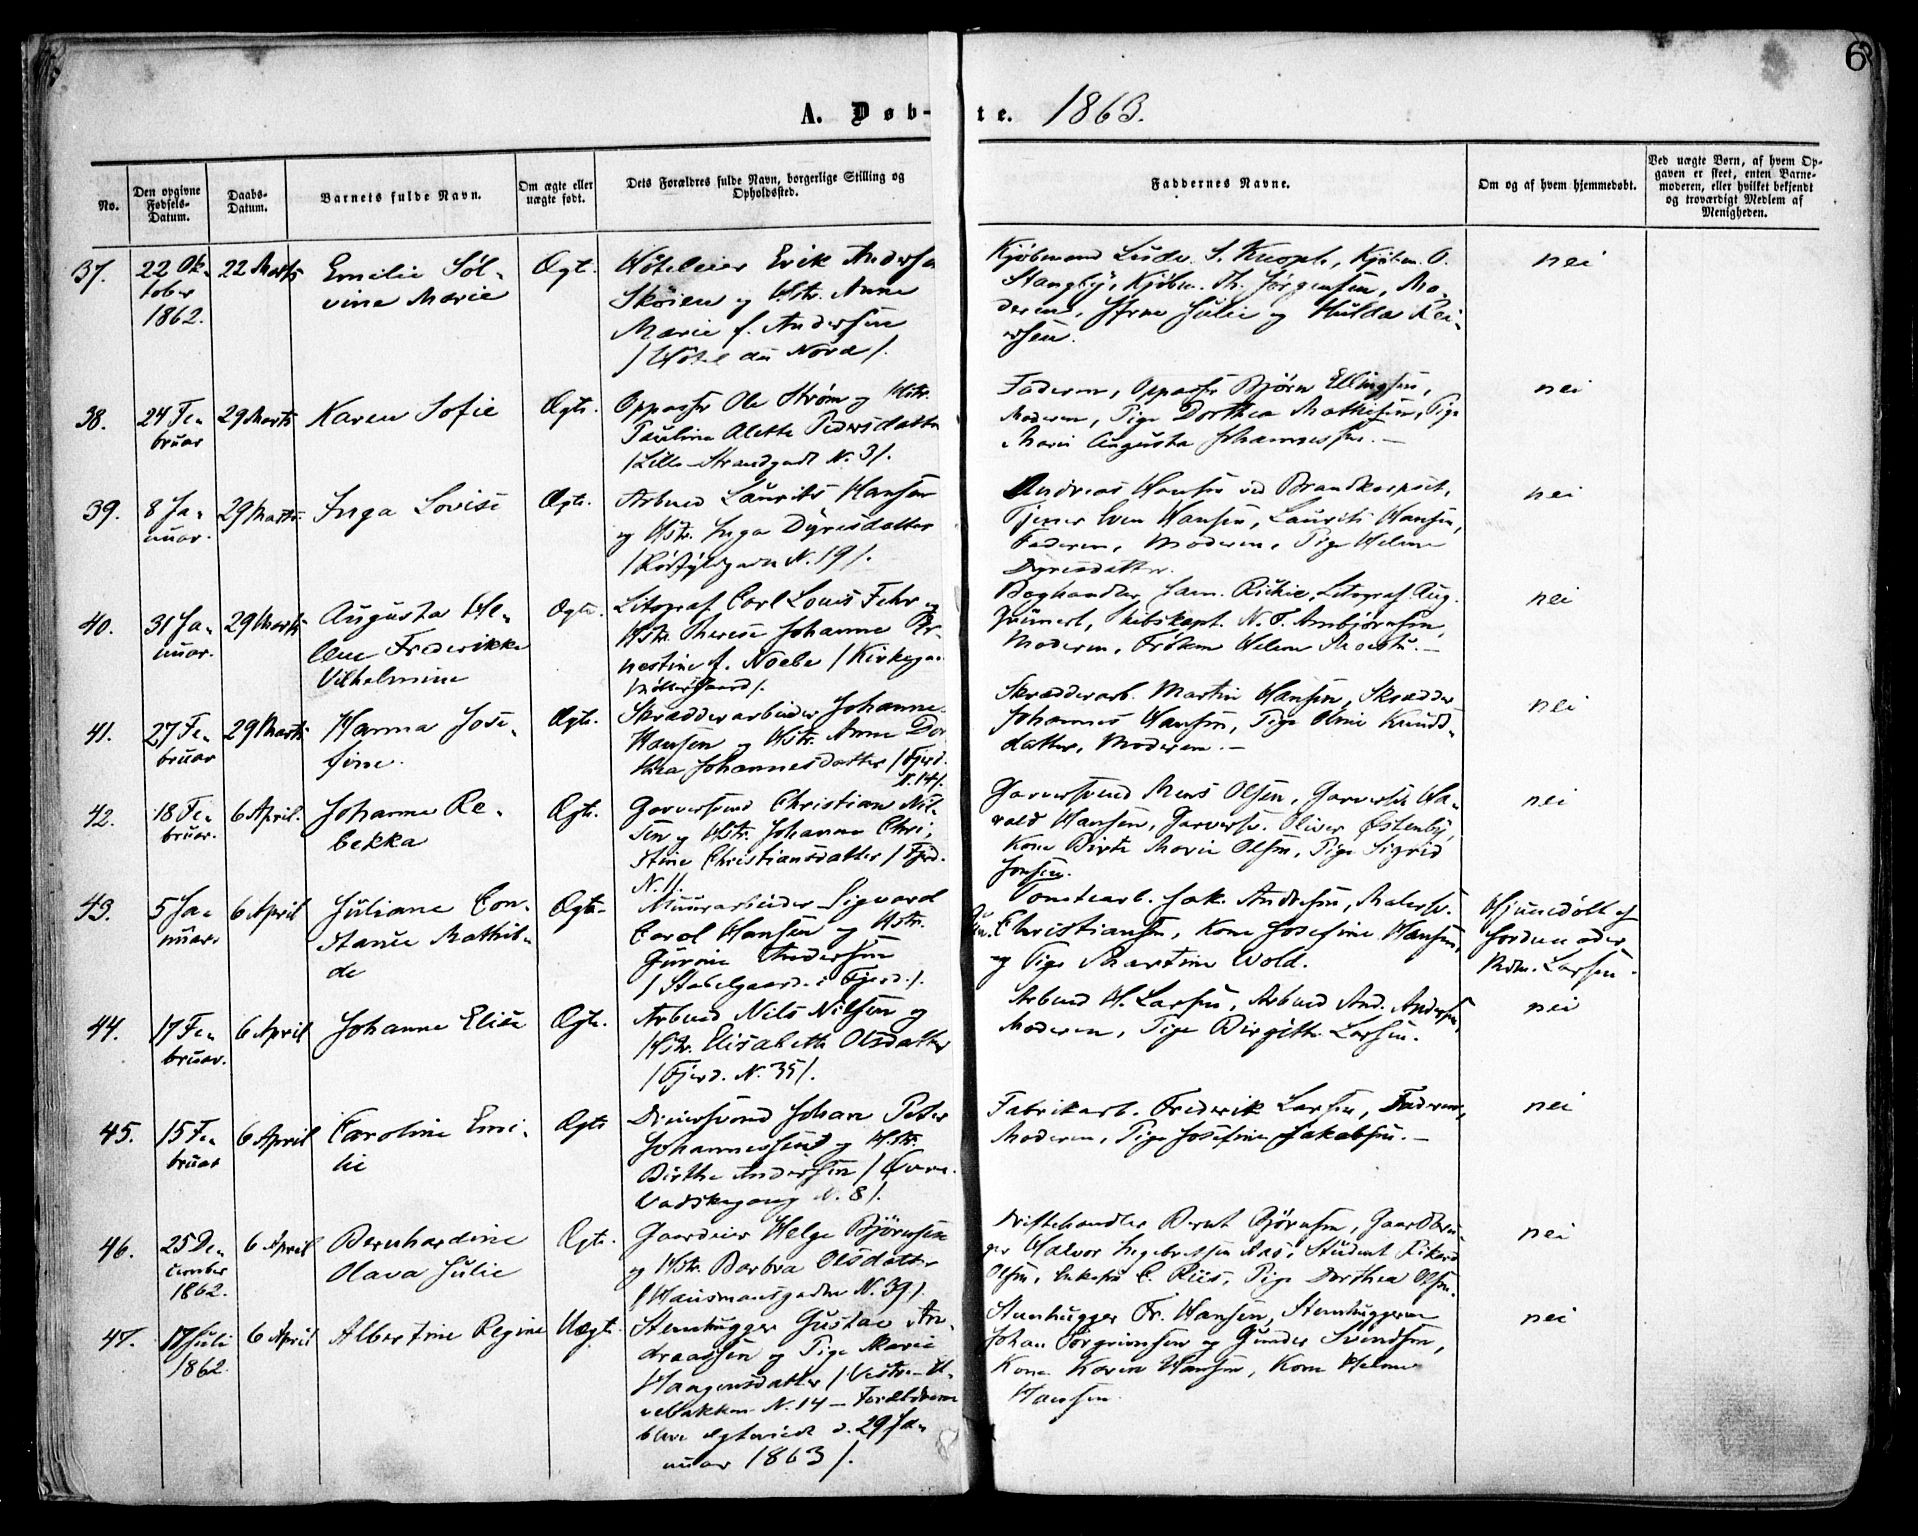 6
A. Døb-te. 1863.
No.
Den opgivne Fødsels-Datum.
Daabs-Datum.
Barnets fulde Navn.
Om ægte eller uægte født.
Dets Forældres fulde Navn, borgerlige Stilling og Opholdssted.
Faddernes Navne.
Om og af hvem hjemmedøbt.
Ved uægte Børn, af hvem Opgaven er skeet, enten Barnemoderen, eller hvilket bekjendt og troværdigt Medlem af Menigheden.
37.
22 Ok-
tober
1862.
22 Marts
Emilie Søl-
vine Marie
Ægt.
Hôteleier Erik Anderse
Skøien og Hstr. Anne
Marie f. Andersen
/Hôtel du Nord/.
Kjøbmand S. Knoph, Kjøbm. O.
Stangby, Kjøbm. Th. Jørgensen, Mo-
deren, Julie og Hulda Rei-
ersen.
nei
38.
24 Fe-
bruar
29 Marts
Karen Sofie
Ægte.
Oppasser Ole Strøm og Hstr.
Pauline Alette Pedersdatter
/Lille-Strandgade N. 3/.
Faderen, Oppasser Bjørn Ellingsen,
Moderen, Pige Dorthea Mathisen, Pige
Marie Augusta Johannessen.
nei
39.
8 Ja-
nuar.
29 Marts
Inga Lovise
Ægte.
Arbmd Laurits Hansen
og Hstr. Inga Dyresdatter
N. 19/.
Andreas Hansen ved Brandkorpset,
Tjener Even Hansen, Laurits Hansen,
Faderen, Moderen, Pige Helene
Dyresdatter.
nei
40.
31 Ja-
nuar.
29 Marts
Augusta He-
lene Frederikke
Vilhelmine
Ægte
Litograf Carl Louis Fehr og
Hstr. Therese Johanne Er-
nestine f. Noebe /Kirkega
Møllergaard/.
Boghandler Jam. Richie, Litograf Aug.
Skibskapt. N. T. Ambjørnsen,
Moderen, Frøken Helene
nei
41.
27 Fe-
bruar
29 Marts
Hanna Jose-
fine.
Ægte.
Skrædderarbeider Johanne
Hansen og Hstr. Anne Dor
thea Johannesdatter /Fjerd.
N. 14/.
Skrædderarb. Martin Hansen, Skrædder
Johannes Hansen, Pige Oline Knuds-
datter, Moderen.
nei
42.
18 Fe-
bruar.
6 April.
Johanne Re-
bekka
Ægte.
Garversvend Christian Nil-
sen og Hstr. Johanne Chri-
stine Christiansdatter /Fjerd.
N. 11.
Garversvend Mens Olsen, Garversv. Ha-
rald Hansen, Garversv. Oliver Østenby,
Kone Birte Marie Olsen, Pige Sigrid
Jonsen.
nei
43.
5 Ja-
nuar.
6 April
Juliane Con-
stance Mathil-
de
Ægte.
Muurarbeider Sigvard
Carol Hansen og Hstr.
Gurine Andersen
/Stabelgaard i Fjerd./.
Tomtearb. Jak. Andersen, Malersv.
Christiansen, Kone Josefine Hansen,
og Pige Martine Wold.
Hjemmedøbt af
Jordemoder
Mdm. Larsen.
44.
17 Fe-
bruar.
6 April
Johanne Elise
Ægte.
Arbmd Nils Nilsen og
Hstr. Elisabeth Olsdatter
/Fjerd. N. 35/.
Arbmd H. Larsen, Arbmd And. Andersen,
Moderen, Pige Birgitte Larsen.
nei
45.
15 Fe-
bruar
6 April
Caroline Emi-
lie
Ægte
Dreiersvend Johan Peter
Johannessen og Hstr.
Birthe Andersen /Øvre
Vaskegang N. 8/.
Fabrikarb. Frederik Larsen, Faderen,
Moderen, Pige Josefine Jakobsen.
nei
46.
25 De-
cember
1862.
6 April
Bernhardine
Olava Julie
Ægte.
Gaardeier Helge Bjørnsen
og Hstr. Barbra Olsdatter
/Hausmansgaden N. 39/.
Driftehandler Bernt Bjørnsen, Gaardbru-
ger Halvor Ingebretsen Aas, Student Rikard
Olsen, Enkefru C. Riis, Pige Dorthea Olsen.
nei
47.
17 Juli
1862.
6 April
Albertine Regine
Uægt.
Stenhugger Gustav An-
dreassen og Pige Marie
Haagensdatter /Vestre
bakken N. 14 – Forældrene
bleve ægteviede d. 29 Ja-
nuar 1863/.
Stenhugger Fr. Hansen, Stenhuggerne
Johan Torgrimsen og Gunder Svendsen,
Kone Karen Hansen, Kone Helene
Hansen.
nei